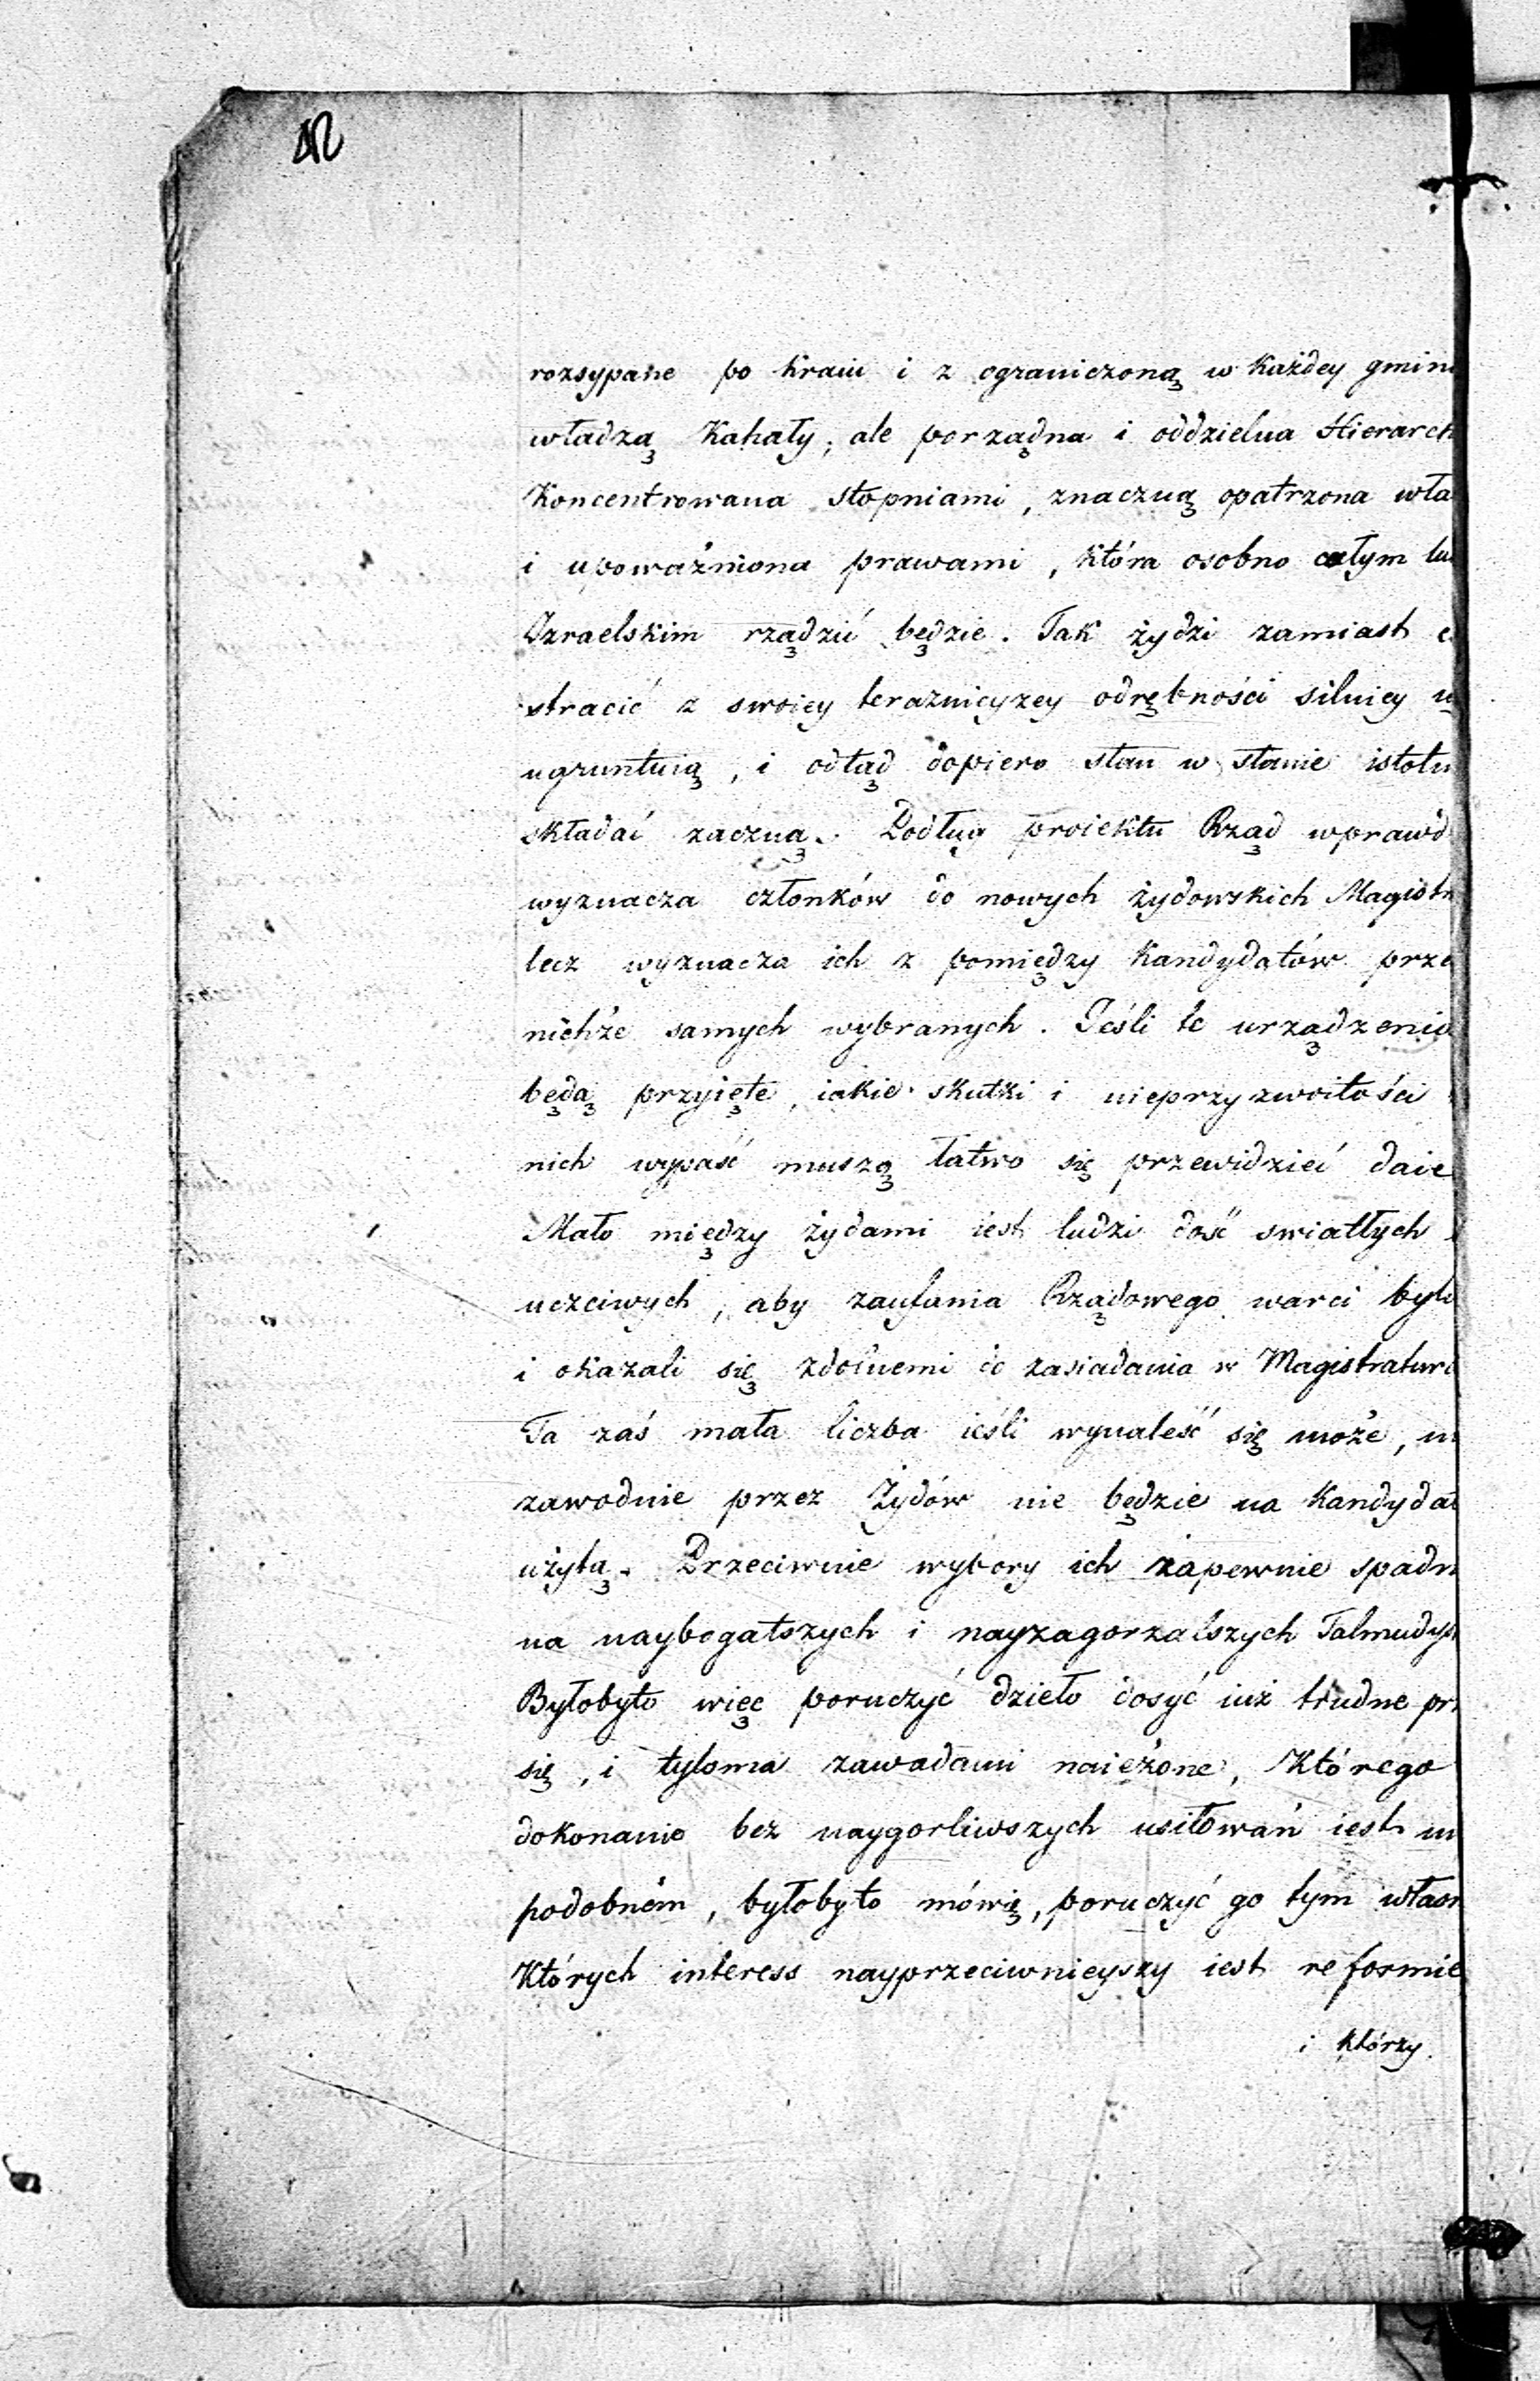 rozsypane po kraiu i z ograniczoną w każdey gmin
władzą Kahały, ale porządna i oddzielna Hierarch
Koncentrowana stopniami, znaczną opatrzona wła
i upoważniona prawami, która osobno całym lu
Izraelskim rządzić będzie. Tak żydzi zamiast c
stracić z swoiey teraznieyzey odrębności silniey u
ugruntuią, i odtąd dopiero stan w stanie istotn
składać zaczną. Podług proiektu Rząd wprawd
wyznacza członków do nowych żydowskich Magistr
lecz wyznacza ich z pomiędzy Kandydatów prze
nichże samych wybranych. Jeśli te urządzenia
będą przyięte, iakie skutki i nieprzyzwoitości
nich wypaść muszą łatwo się przewidzieć daie
Mało między żydami iest ludzi dość swiatłych
uczciwych, aby zaufania Rządowego warci byli
i okazali się zdolnemi do zasiadania w Magistratur
Ta zaś mała liczba ieśli wynaleść się może, ni
zawodnie przez Żydów nie będzie na Kandydat
użytą. Przeciwnie wybory ich zapewnie spadn
na naybogatszych i nayzagorzalszych Talmudys
Byłobyto więc poruczyć dzieło dosyć iuż trudne prz
się, i tyloma zawadami naieżone, Którego
dokonanie bez naygorliwszych usiłowań iest ni
podobném, byłobyto mówię, poruczyć go tym własn
Których interess nayprzeciwnieyszy iest reformie
i którzy.